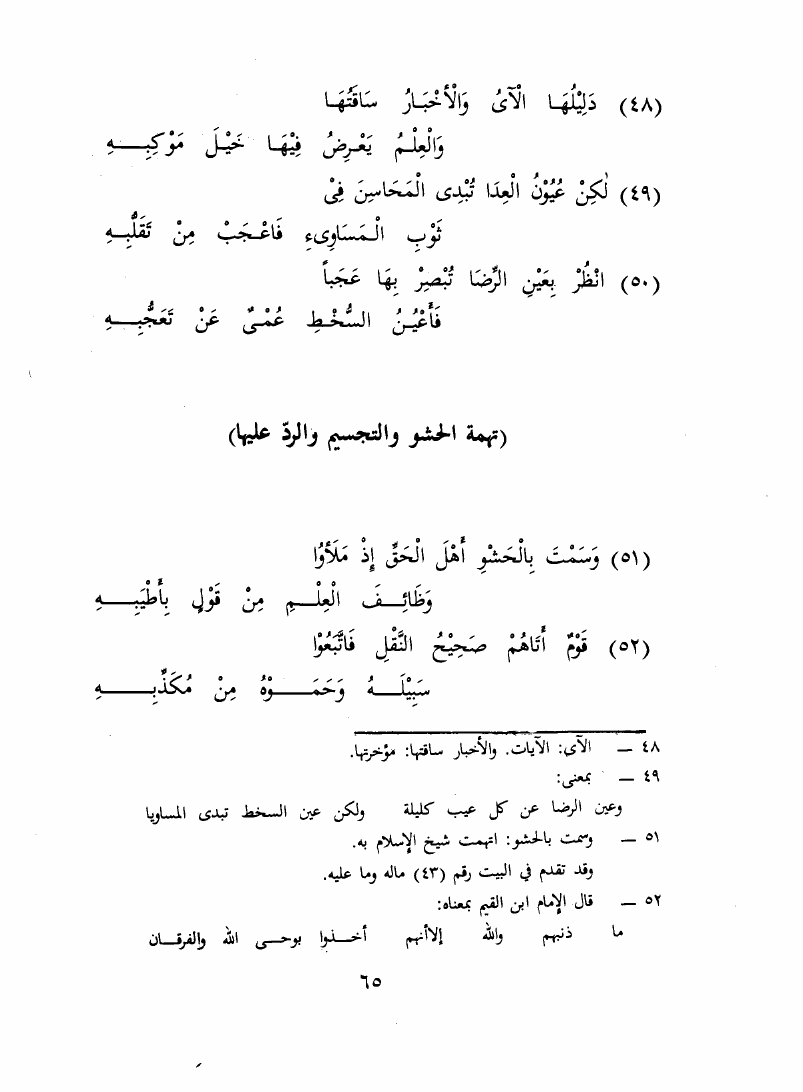 (٤٨) دَلِيْلُهَا الْآىُ وَالْأَخْبَارُ سَاقَتُهَا
وَالْعِلْمُ يَعْرِضُ فِيْهَا خَيْلَ مَوْكِبِهِ
(٤٩) لٰكِنْ عُيُوْنُ الْعِدَا تُبْدِى الْمَحَاسِنَ فِىْ
ثَوْبِ الْمَسَاوِىءِ فَاعْجَبْ مِنْ تَقَلُّبِهِ
(٥٠) انْظُرْ بِعَيْنِ الرِّضَا تُبْصِرْ بِهَا عَجَباً
فَأَعْيُنُ السُّخْطِ عُمْىٌ عَنْ تَعَجُّبِهِ
(تهمة الحشو والتجسيم والردّ عليها)
(٥١) وَسَمْتَ بِالْحَشْوِ أَهْلَ الْحَقِّ إِذْ مَلَأوُا
وَظَائِفَ الْعِلْمِ مِنْ قَوْلٍ بِأَطْيَبِهِ
(٥٢) قَوْمٌ أَتَاهُمْ صَحِيْحُ النَّقْلِ فَاتَّبَعُوْا
سَبِيْلَهُ وَحَمَوْهُ مِنْ مُكَذِّبِهِ
٤٨ — الآى: الآيات. والأخبار ساقتها: مؤخرتها.
٤٩ — بمعنى:
وعين الرضا عن كل عيب كليلة ولكن عين السخط تبدى المساويا
٥١ — وسمت بالحشو: اتهمت شيخ الإسلام به.
وقد تقدم في البيت رقم (٤٣) ماله وما عليه.
٥٢ — قال الإمام ابن القيم بمعناه:
ما ذنبهم والله إلاأنهم أخذوا بوحى الله والفرقان
٦٥